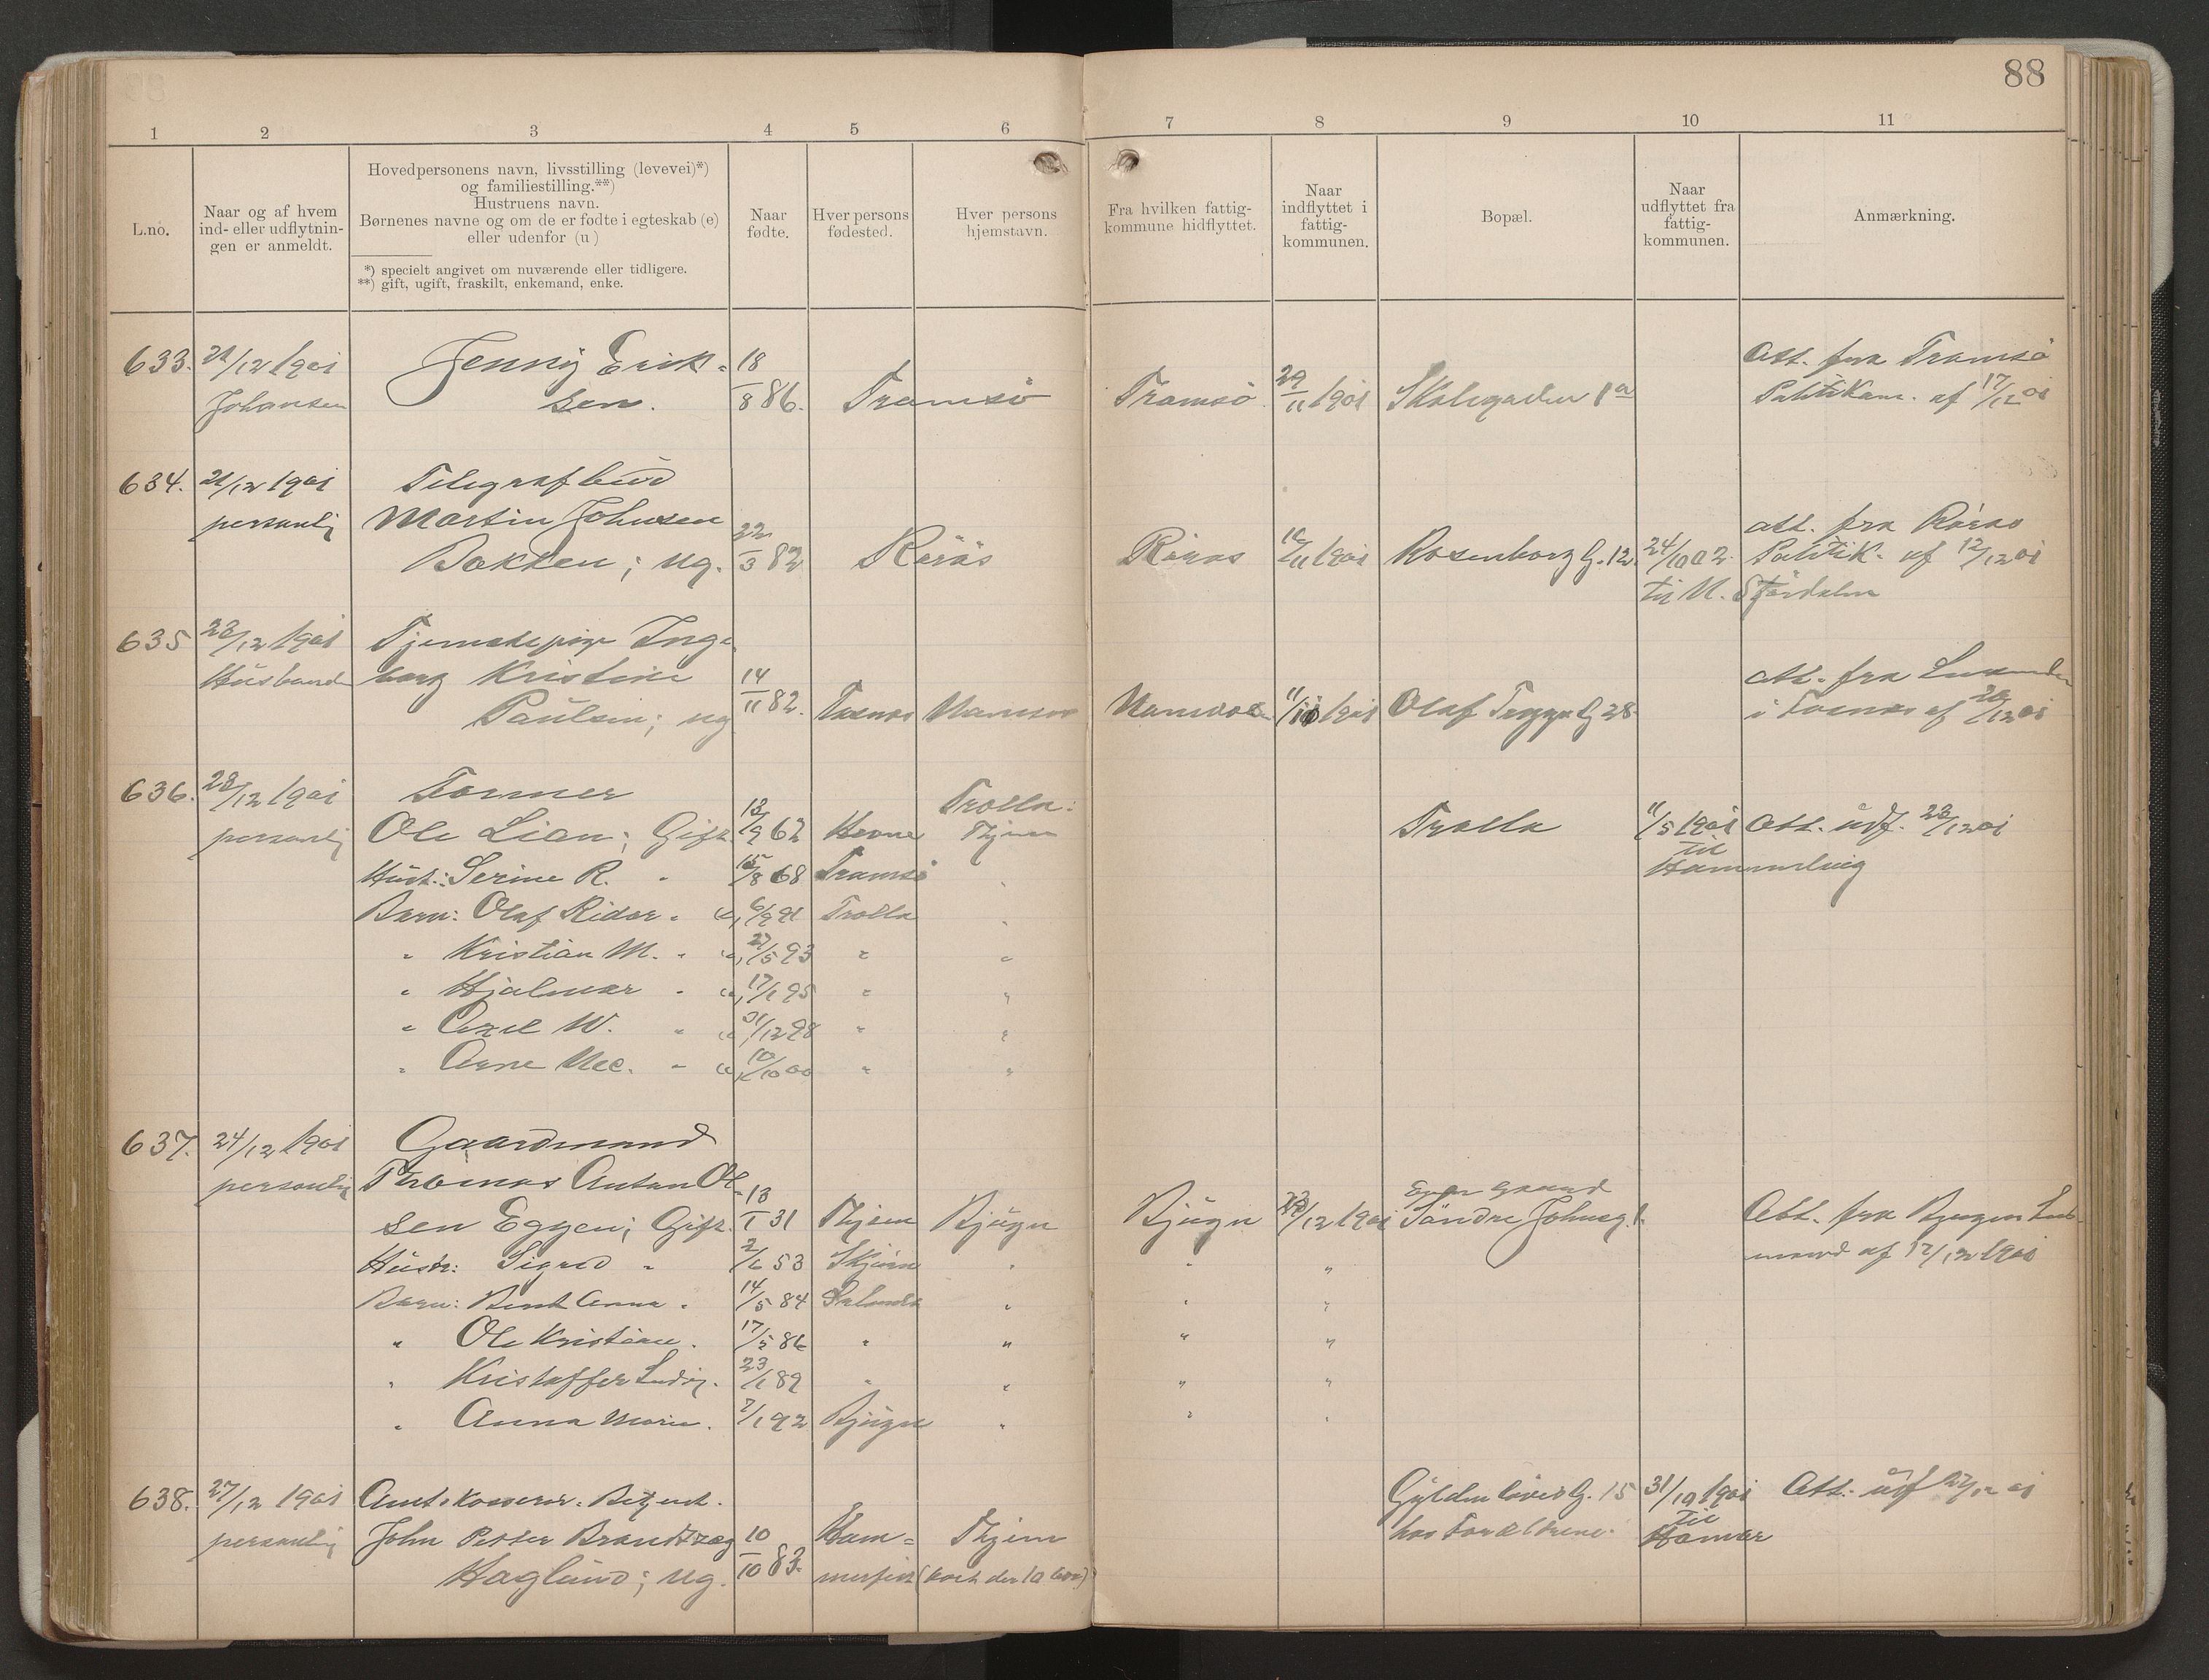 88
1 2 3 4 5 6 7 8 9 10 11
L.no.
Naar og af hvem
ind- eller udflytnin-
gen er anmeldt.
Hovedpersonens navn, livsstilling (levevei)*)
og familiestilling.**)
Hustruens navn.
Børnenes navne og om de er fødte i egteskab (e)
eller udenfor (u)
*) specielt angivet om nuværende eller tidligere.
**) gift, ugift, fraskilt, enkemand, enke.
Naar
fødte.
Hver persons
fødested.
Hver persons
hjemstavn.
Fra hvilken fattig-
kommune hidflyttet.
Naar
indflyttet i
fattig-
kommunen.
Bopæl.
Naar
udflyttet fra
fattig-
kommunen.
Anmærkning.
633. 21/12 1901 Jenny Erik- 18 Att. fra Tromsö
Johansen sen. /8 86. Tromsö Tromsö 29/11 1901 Skolegaden 1a Politikam. af 17/12 01
634. 21/12 1901 Telegrafbud
personlig Martin Johnsen att. fra Röros
Bakken; ug. 22/3 82 Rörös Röros 12/11 1901 Rosenborg G. 12 24/10 02 Politik. af 12/12 01
til N. Stjördalen
635 23/12 1901 Tjenestepige Inge-
Husbond borg Kristine 14 att. fra
Paulsen; ug /11 82. Namsos Namsos 1/11 1901 Olaf Trygg. G 28. i Fosnes af 20/12 01
636. 23/12 1901 Former Trolla:
personlig Ole Lian; Gift. 13/9 62 Hevne Thjem Trolla 1/5 1901 Att. udf. 23/12 01
til
Hustr: Serine R. " 15/8 68 Tromsö " Hammerling
Barn: Olaf Reidar " e, 6/9 91 Trolla "
" Kristian M. " e, 27/5 93 " "
" Hjalmar " e, 17/1 95 " "
" Axel W. " e, 31/12 98 " "
" Arne " e, 10/10 00 " "
637. 24/12 1901 Gaardmand
personlig Thomas Anton Ol- 13 Egen gaard
sen Eggen; Gift. /1 31 Thjem Bjugn Bjugn 23/12 1901 Söndre Johnsg. 1. Att. fra Bjugn Lens-
Hustr: Sigrid " 2/6 53 Skjörn " " " mand af 17/12 1901
Barn: Berit Anna " 14/5 84 " " "
" Ole Kristian. 17/5 86 " " " "
" Kristoffer Ludvig. 23/1 89 " " " "
" Anna Marie. 7/1 92 Bjugn " " "
638. 27/12 1901 Amtskontor. Betjent. Gyldenlöves G. 15 31/10 1901 Att: udf 27/12 01
til
personlig John Petter Brandtzæg 10 Ham= Thjem hos Forældrene. Hamar
Haglund; ug. /10 83. merfest (boet der 10 aar)